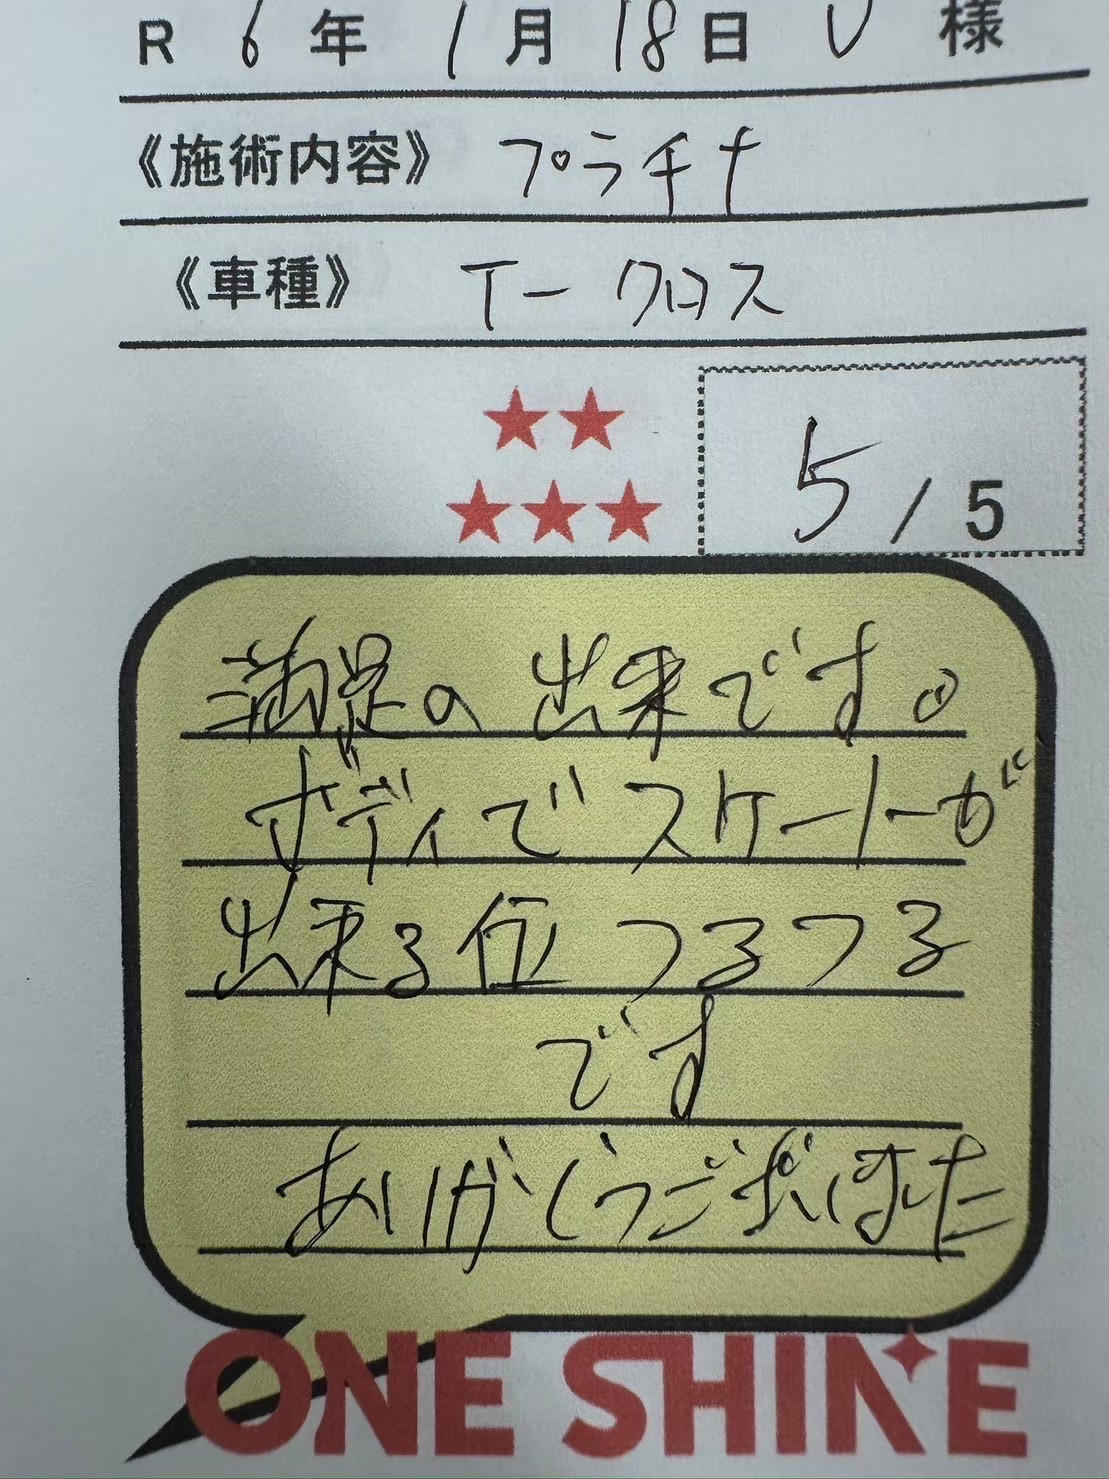 R 6 年 1 月 18 日 U 様
《施術内容》 プラチナ
《車種》 Tークロス
★★
★★★
5 / 5
満足の出来です。
ボディでスケートが
出来る位つるつる
です
ありがとうございました
ONE SHINE